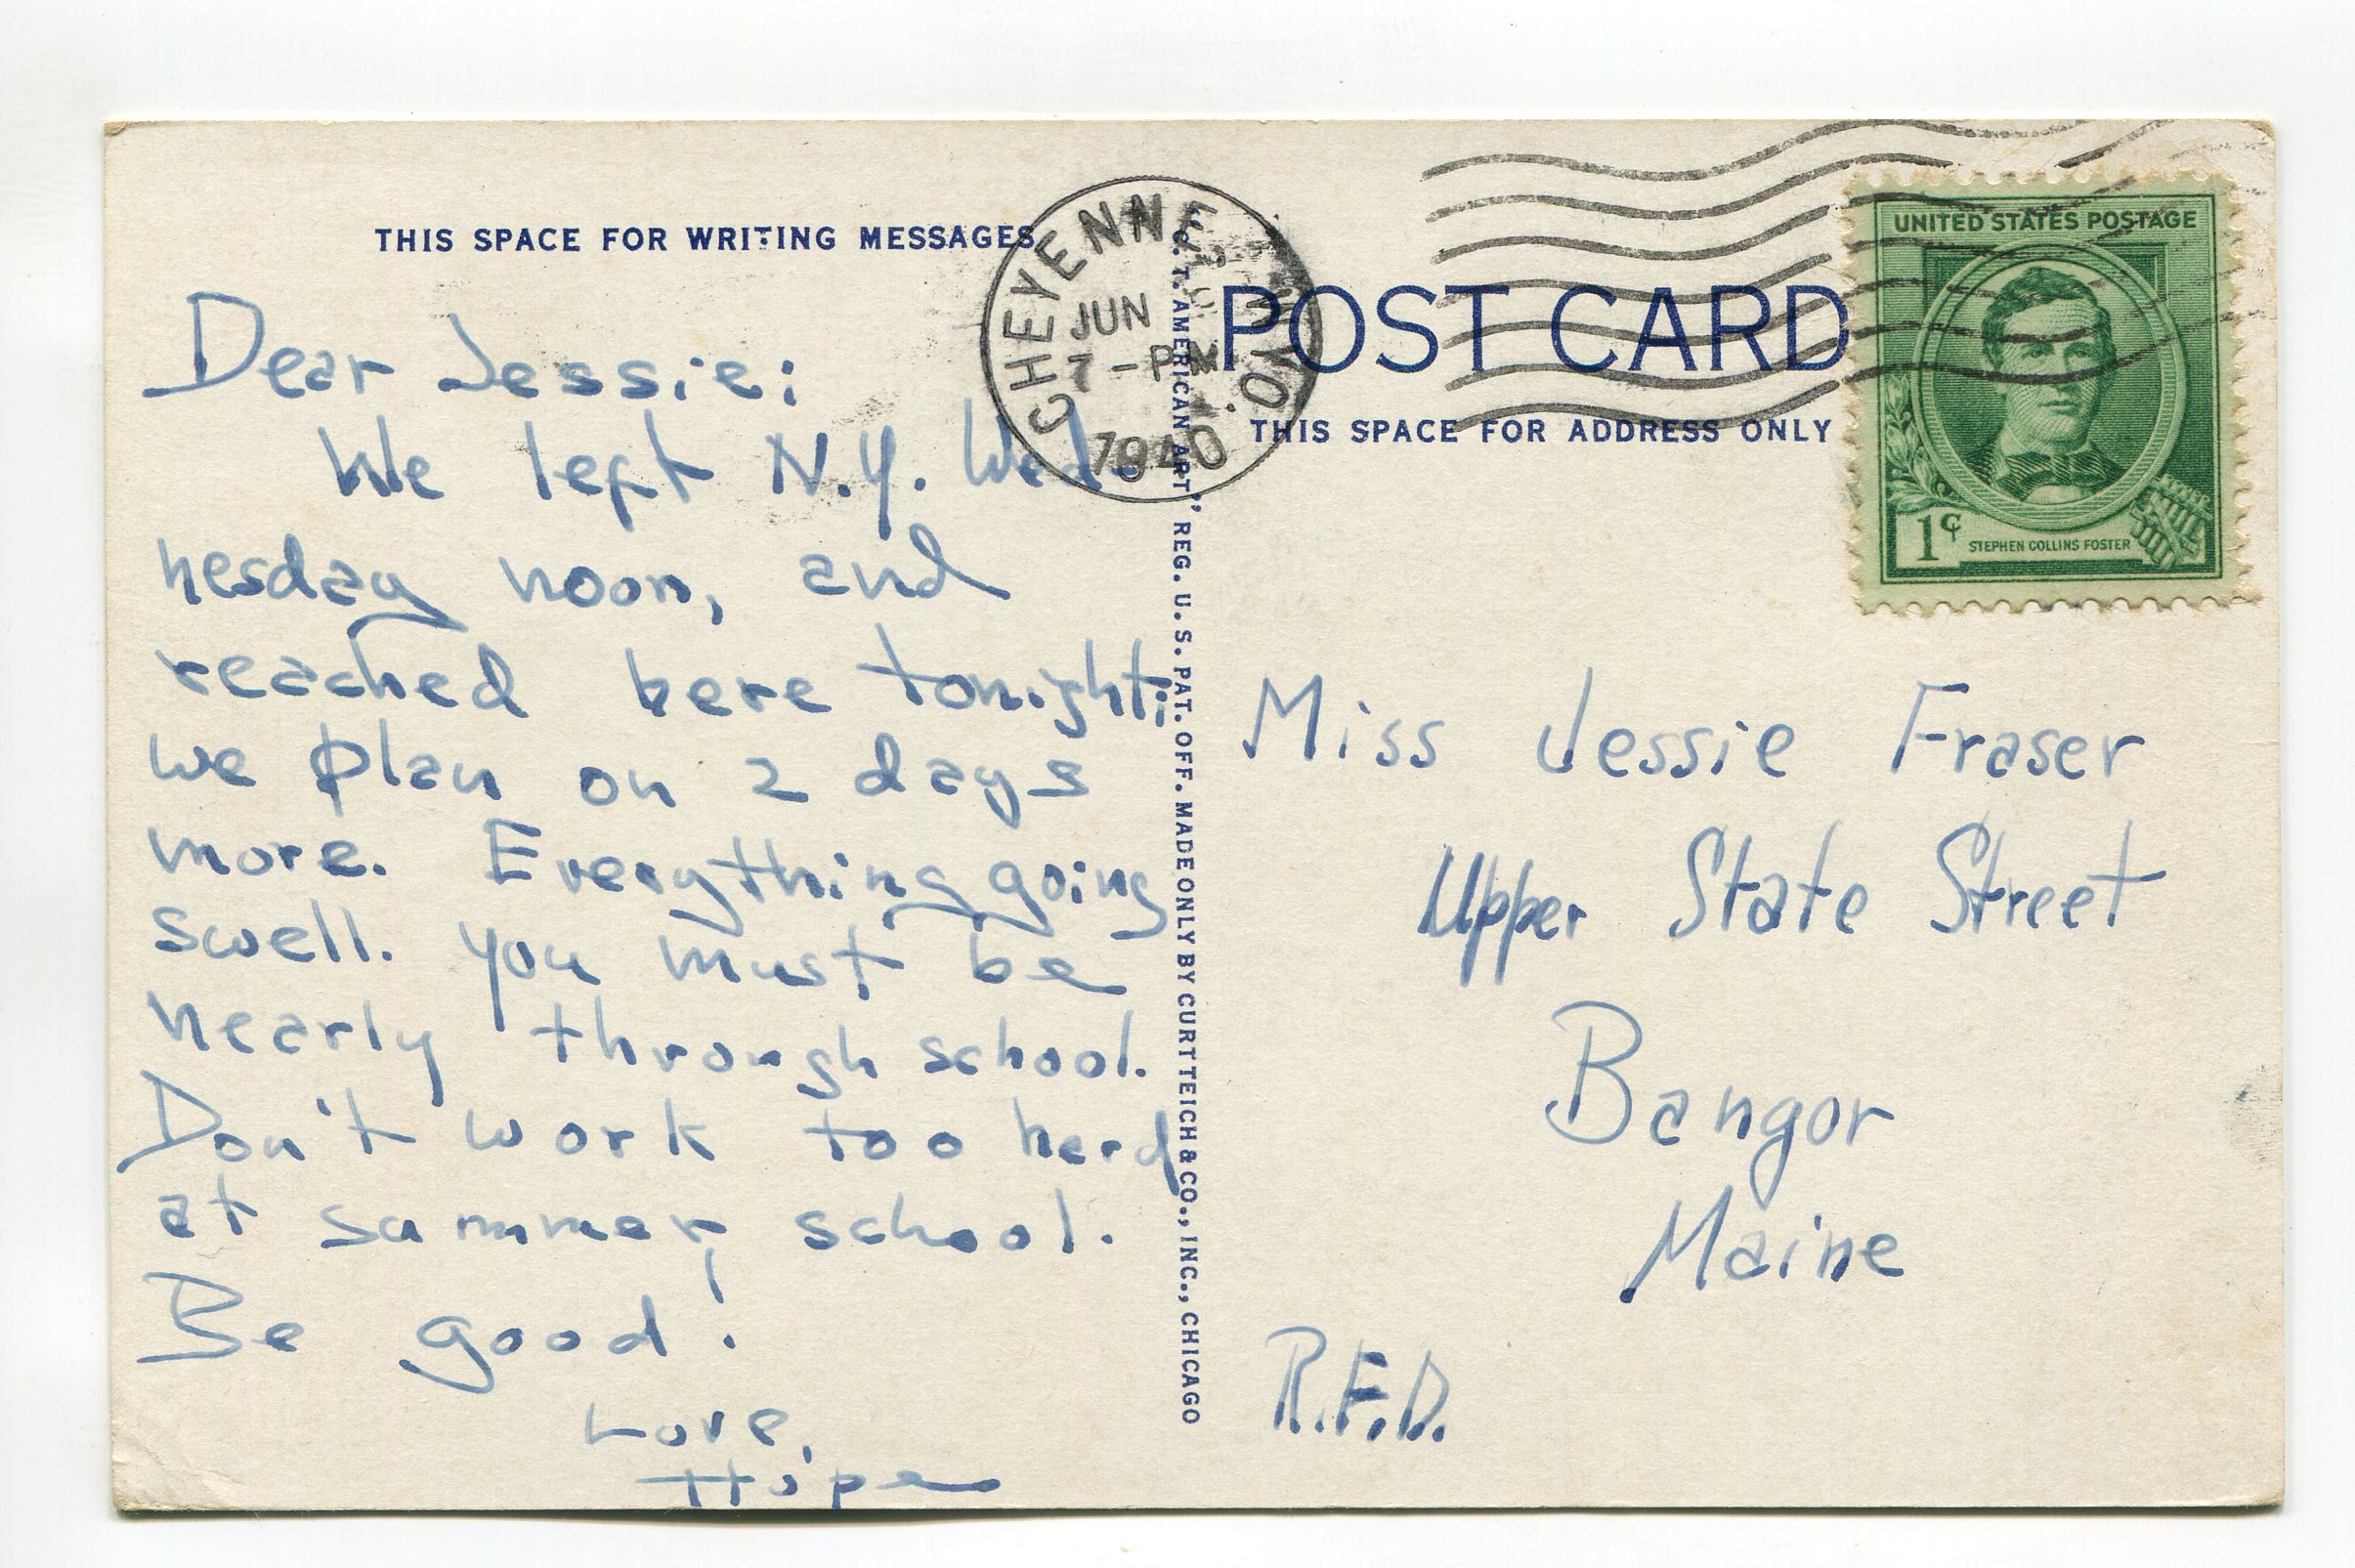 THIS SPACE FOR WRITING MESSAGES
Dear Jessie:
We left N.Y. Wed-
nesday noon, and
reached here tonight;
we plan on 2 days
more. Everything going
swell. You must be
nearly through school.
Don't work too hard
at summer school.
Be good!
Love,
Hope
CHEYENNE WYO.
JUN
7 - PM
1940
"C. T. AMERICAN ART", REG. U. S. PAT. OFF. MADE ONLY BY CURT TEICH & CO., INC., CHICAGO
POST CARD
THIS SPACE FOR ADDRESS ONLY
UNITED STATES POSTAGE
1¢
STEPHEN COLLINS FOSTER
Miss Jessie Fraser
Upper State Street
Bangor
Maine
R.F.D.